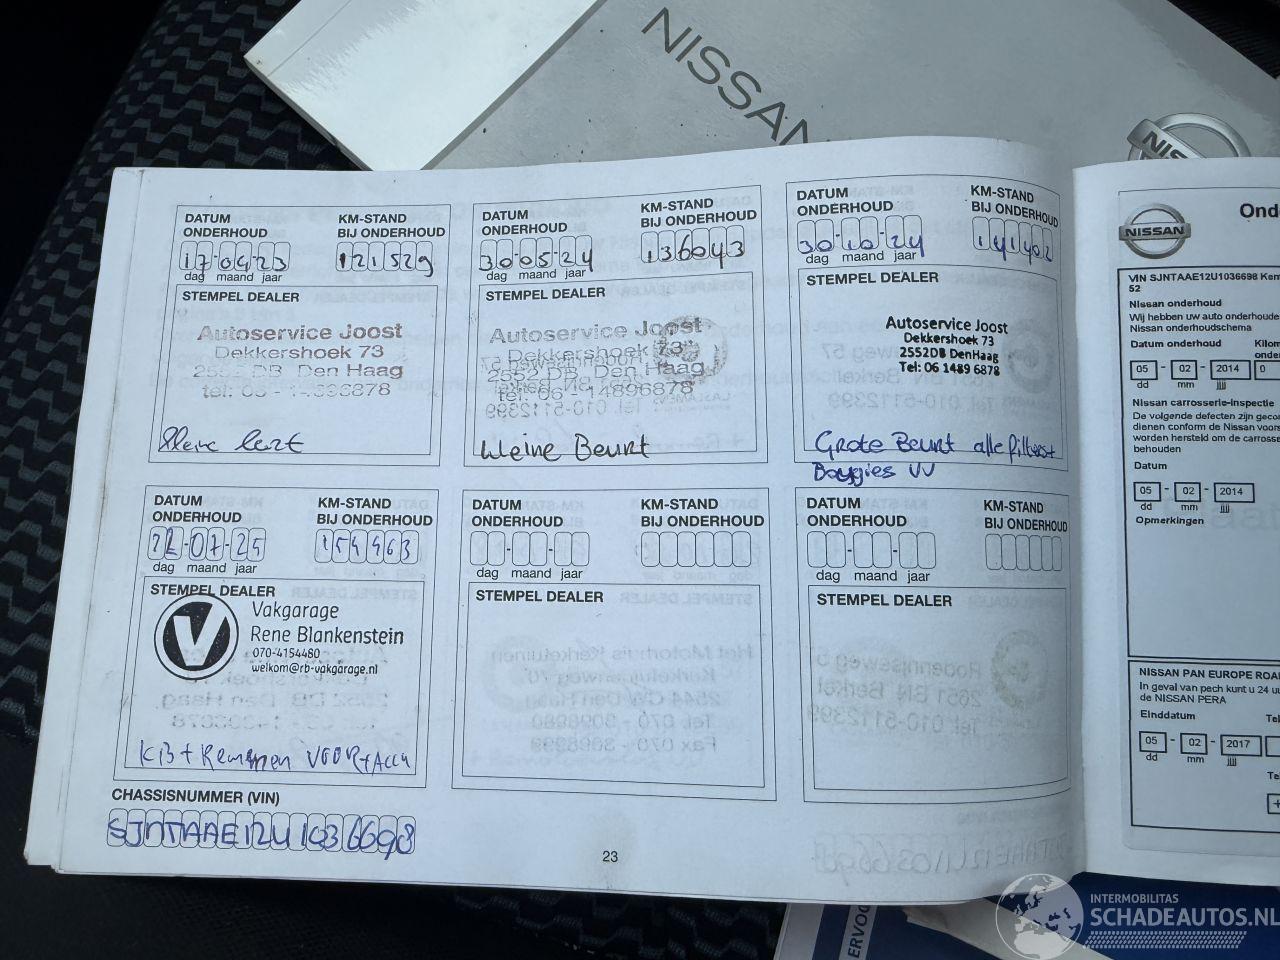 NISSAN
DATUM ONDERHOUD
KM-STAND BIJ ONDERHOUD
17-04-23
121529
dag maand jaar
STEMPEL DEALER
Autoservice Joost
Dekkershoek 73
2552 DB Den Haag
tel: 06 - 14896878
kleine beurt
DATUM ONDERHOUD
KM-STAND BIJ ONDERHOUD
30-05-24
136043
dag maand jaar
STEMPEL DEALER
Autoservice Joost
Dekkershoek 73
2552 DB Den Haag
tel: 06 - 14896878
kleine Beurt
DATUM ONDERHOUD
KM-STAND BIJ ONDERHOUD
30-10-24
141402
dag maand jaar
STEMPEL DEALER
Autoservice Joost
Dekkershoek 73
2552DB DenHaag
Tel: 06 1489 6878
Grote Beurt alle filters+
Bougies VV
DATUM ONDERHOUD
KM-STAND BIJ ONDERHOUD
-07-25
154463
dag maand jaar
STEMPEL DEALER
V
Vakgarage
Rene Blankenstein
070-4154480
welkom@rb-vakgarage.nl
KB + Remmen VOOR + Accu
DATUM ONDERHOUD
KM-STAND BIJ ONDERHOUD
dag maand jaar
STEMPEL DEALER
DATUM ONDERHOUD
KM-STAND BIJ ONDERHOUD
dag maand jaar
STEMPEL DEALER
CHASSISNUMMER (VIN)
SJNTAAE12U1036698
23
NISSAN
VIN SJNTAAE12U1036698
52
Nissan onderhoud
Wij hebben uw auto onderhoude
Nissan onderhoudschema
Datum onderhoud
05 - 02 - 2014
0
dd mm jjjj
Nissan carrosserie-inspectie
De volgende defecten zijn
dienen conform de Nissan
worden hersteld om de
behouden
Datum
05 - 02 - 2014
dd mm jjjj
Opmerkingen
NISSAN PAN EUROPE
In geval van pech kunt u 24
de NISSAN PERA
Einddatum
05 - 02 - 2017
dd mm jjjj
INTERMOBILITAS
SCHADEAUTOS.NL